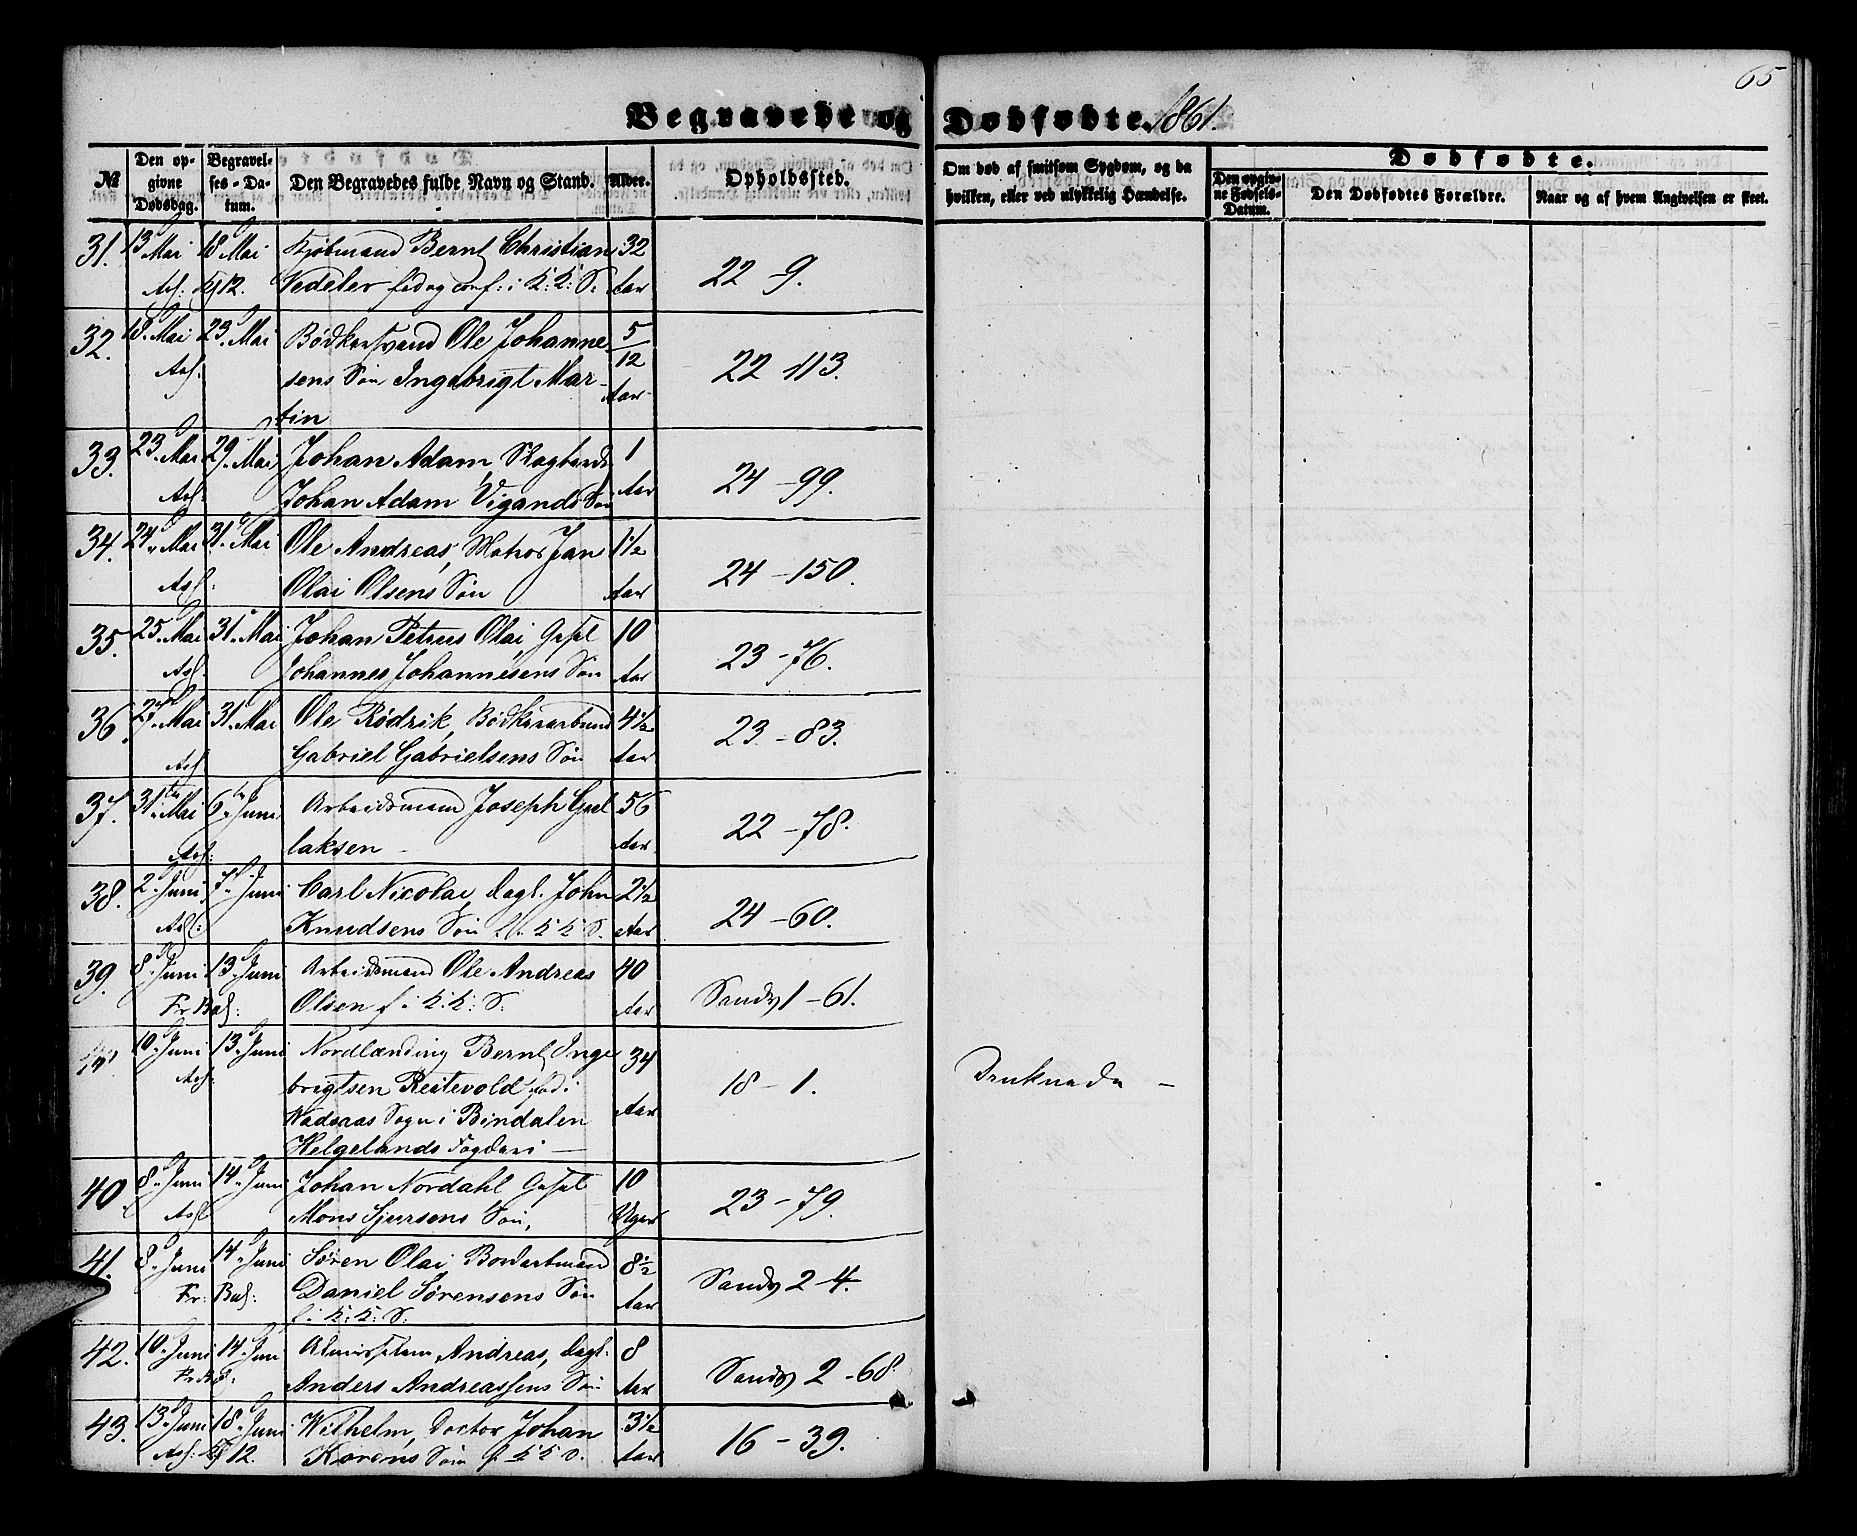 65
Begravede og Dødfødte. 1861.
№
Den opgivne Dødsdag.
Begravelses-Datum.
Den Begravedes fulde Navn og Stand.
Alder.
Opholdssted.
Om død af smitsom Sygdom, og da hvilken, eller ved ulykkelig Hændelse.
Dødfødte.
Den opgivne Fødsels-Datum.
Den Dødfødtes Forældre.
Naar og af hvem Angivelsen er skeet.
31. 13 Mai 18 Mai Kjøbmand Bernt Christian 32
Vedeler fød og conf: i K: K: S: Aar 22-9.
32. 18. Mai 23. Mai Bødkersvend Ole Johanne 5/12
sens Søn Ingebrigt Mar- Aar 22-113.
tin
33. 23. Mai 29. Mai Johan Adam, 1
Johan Adam Vigands Søn Aar 24-99.
34. 24. Mai 31. Mai Ole Andreas, Matros Jan 1 1/2
Olai Olsens Søn Aar 24-150.
35. 25. Mai 31. Mai Johan Petrus Olai, Gesel 10
Johannes Johannesens Søn Aar 23-76.
36. 27. Mai 31. Mai Ole Rødrik, 4 1/2
Gabriel Gabrielsens Søn Aar 23-83.
37. 31. Mai 6. Juni Arbeidsmand Joseph Gjel 56
laksen - Aar 22-78.
38. 2. Juni 7. Juni Carl Nicolai, dagl. John 2 1/2
Knudsens Søn K K S. Aar 24-60.
39. 8. Juni 13. Juni Arbeidsmand Ole Andreas 40
Olsen f i K: K: S: Aar Sandv 1-61.
10. Juni 13. Juni Nordlænding Bernt Inge 34
brigtsen Reitevold fød i 18-1. Druknede -
Sogn i Bindalen Aar
Helgelands Fogderi -
40 8. Juni 14. Juni Johan Nordahl Gesel 10
Mons Sjursens Søn, Uger 23-79.
41. 8. Juni 14. Juni Søren Olai 8 1/2
Daniel Sørensens Søn Aar Sandv 2-4.
f i K: K: S:
42. 10. Juni 14. Juni Andreas, dagl. 8
Anders Andreassens Søn Aar Sandv 2-68.
43. 13. Juni 18. Juni Wilhelm, Doctor Johan 3 1/2
Korens Søn f K K S. Aar 16-39.